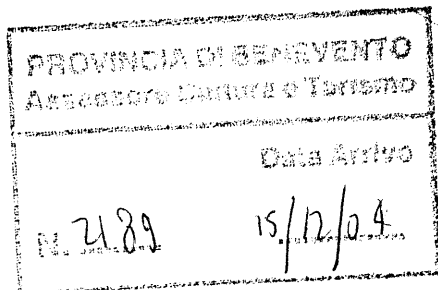 PROVINCIA DI BENEVENTO
Assessore Cultura e Turismo
Data Arrivo
N. 2189 15/12/04